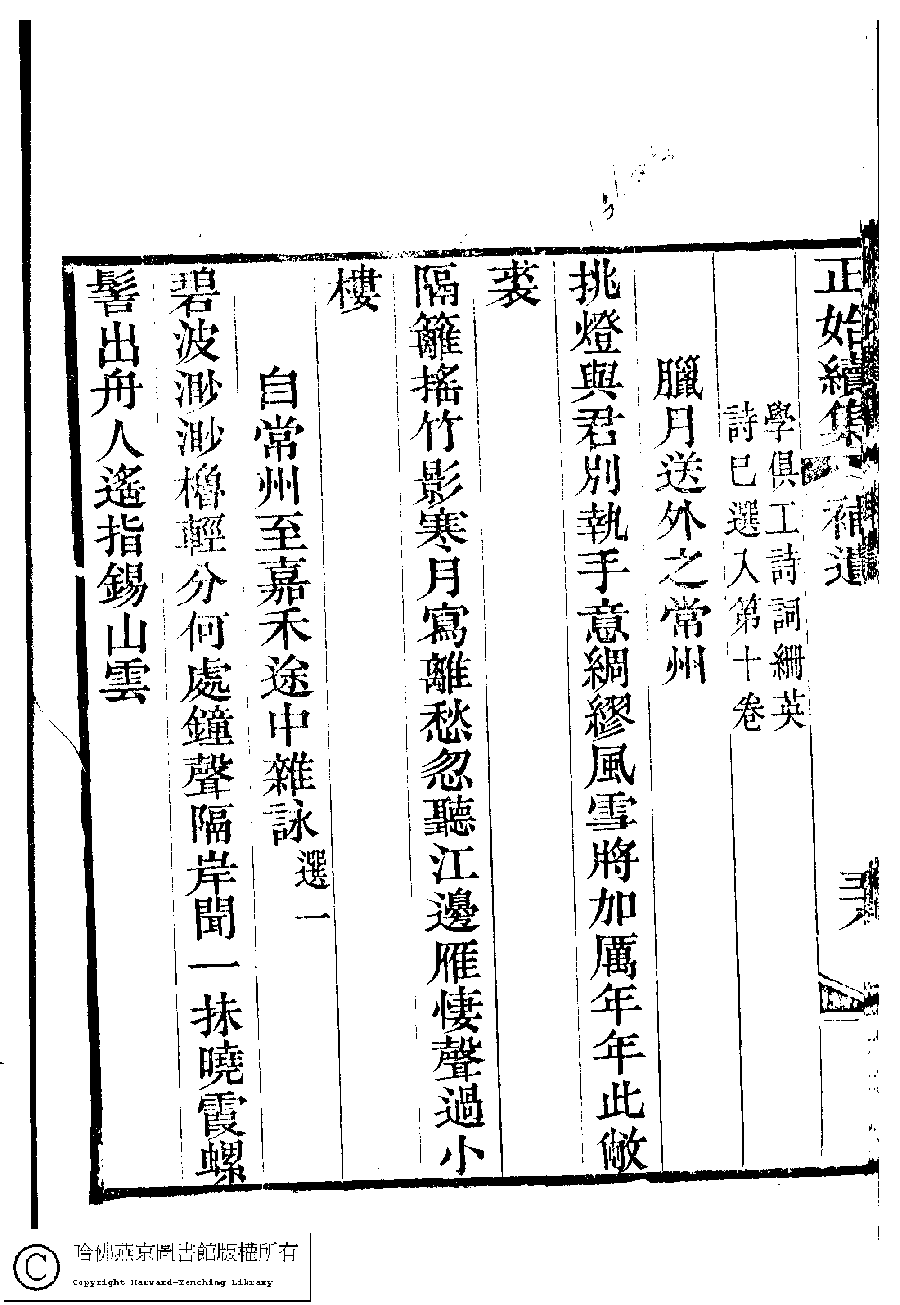 正始續集 補遺
學俱工詩詞英
詩已選入第十卷
臘月送外之常州
挑燈與君別執手意綢繆風雪將加厲年年此敝
裘
隔籬搖竹影寒月寫離愁忽聽江邊雁悽聲過小
樓
自常州至嘉禾途中雜詠選一
碧波渺渺櫓輕分何處鐘聲隔岸聞一抹曉霞螺
髻出舟人遙指錫山雲
哈佛燕京圖書館版權所有
Copyright Harvard-Yenching Library